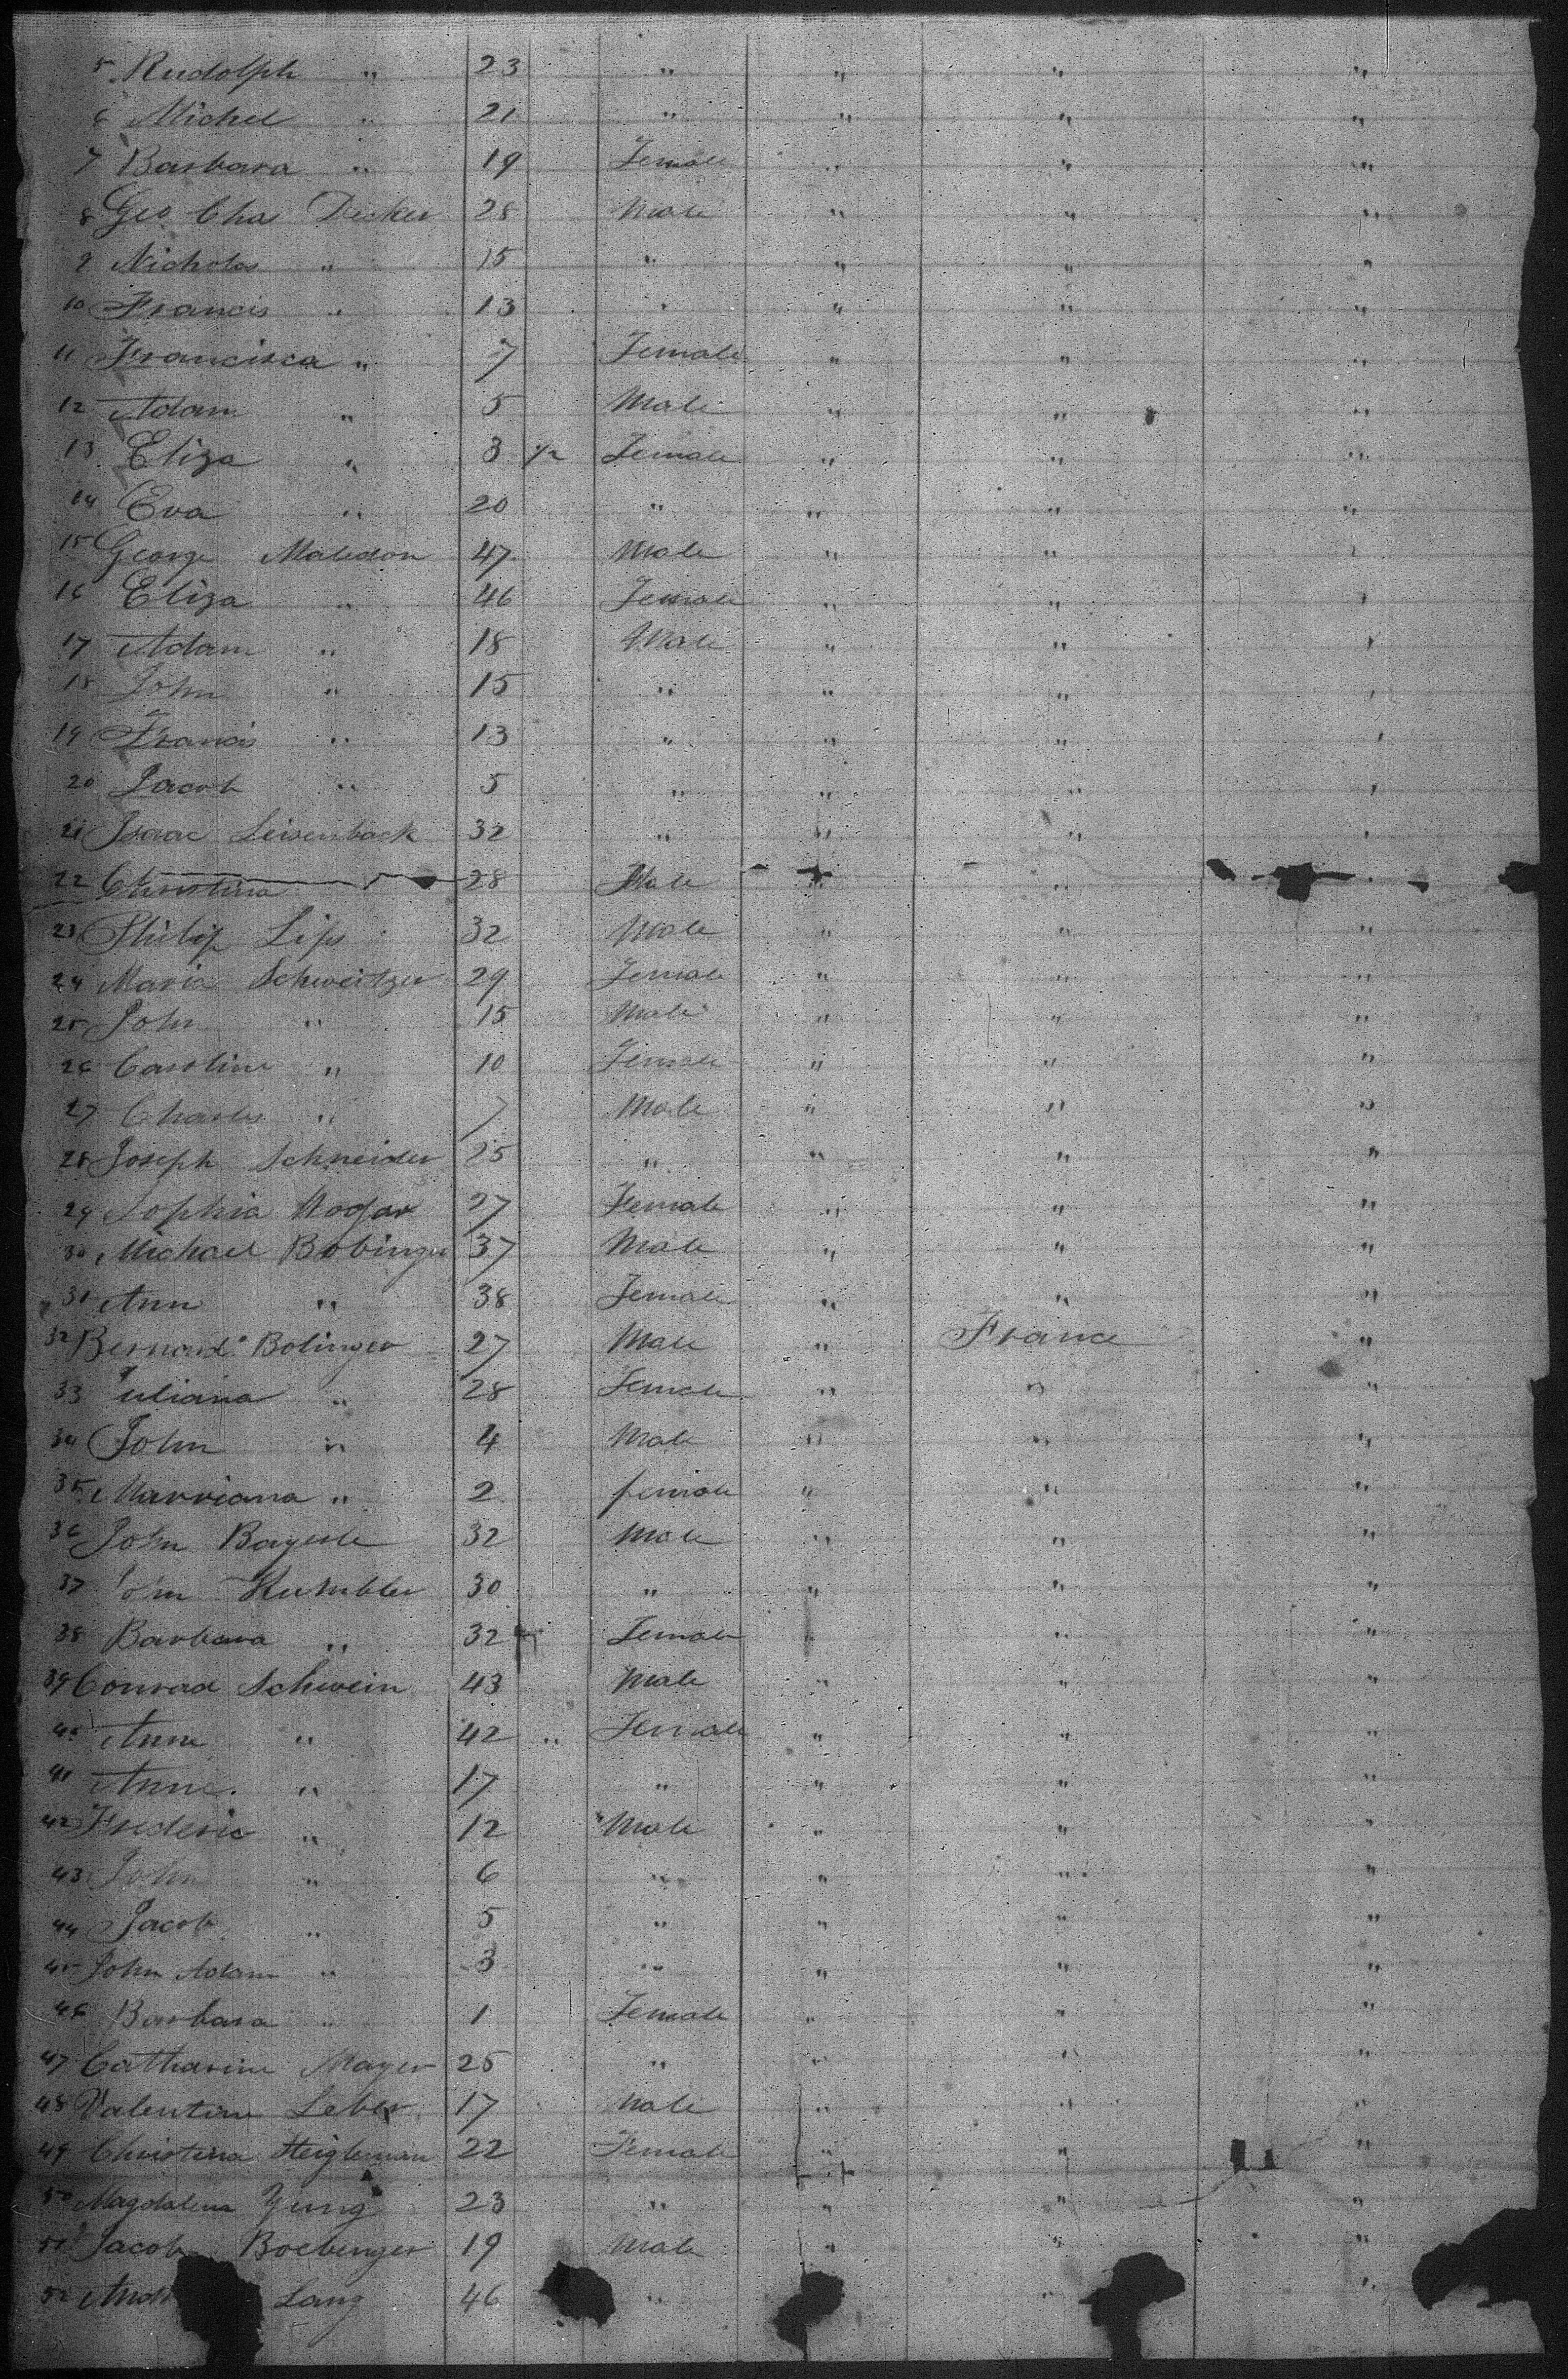 5 Rudolph " 23 " " " "
6 Michel " 21 " " " "
7 Barbara " 19 Female " " "
8 Geo Chas Decker 28 Male " " "
9 Nicholas " 15 " " " "
10 Francis " 13 " " " "
11 Francisca " 7 Female " " "
12 Adam " 5 Male " " "
13 Eliza " 3 1/2 Female " " "
14 Eva " 20 " " " "
15 George Maledon 47 Male " " "
16 Eliza " 46 Female " " "
17 Adam " 18 Male " " "
18 John " 15 " " " "
19 Francis " 13 " " " "
20 Jacob " 5 " " " "
21 Isaac Leisenback 32 " " " "
22 Christina 28 " " "
23 Philip Lips 32 Male " " "
24 Maria Schweitzer 29 Female " " "
25 John " 15 Male " " "
26 Caroline " 10 Female " " "
27 Charles " 7 Male " " "
28 Joseph Schneider 25 " " " "
29 Sophia 27 Female " " "
30 Michael Bobinger 37 Male " " "
31 Ann " 38 Female " " "
32 Bernard Bolinger 27 Male " France "
33 Juliana " 28 Female " " "
34 John " 4 Male " " "
35 Marriana " 2 female " " "
36 John Bayerle 32 Male " " "
37 Humbler 30 " " " "
38 Barbara " 32 Female " " "
39 Conrad Schwein 43 Male " " "
40 Anne " 42 " Female " " "
41 Anne " 17 " " " "
42 Frederic " 12 Male " " "
43 John " 6 " " " "
44 Jacob " 5 " " " "
45 John Adam " 3 " " " "
46 Barbara " 1 Female " " "
47 Catharine Mayer 25 " " " "
48 Valentine Leber 17 Male " " "
49 Christina Heigleman 22 Female " " "
50 Magdalena Yung 23 " " " "
51 Jacob Boebinger 19 Male " " "
52 Lang 46 " " "